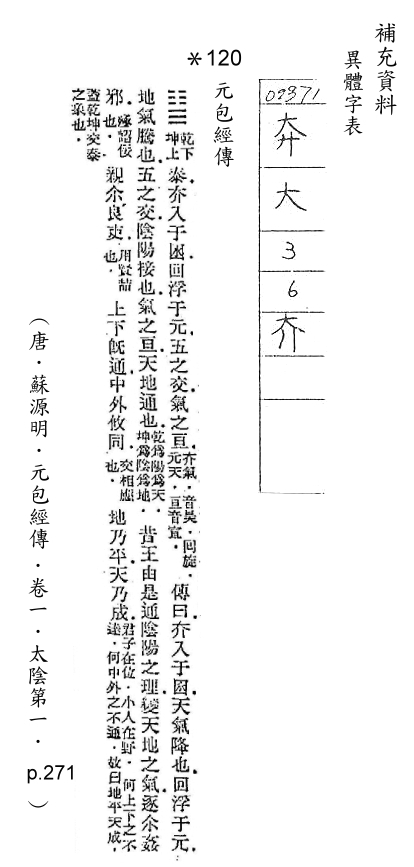 補充資料
異體字表
09371
大
3
6
夰
*120
元包經傳
䷊ 乾下坤上 泰夰入于囦回浮于元五之交氣之亘 夰氣·音昊·回旋·元天·亘音宣· 傳曰夰入于囦天氣降也回浮于元
地氣騰也五之交陰陽接也氣之亘天地通也 乾爲陽爲天坤爲陰爲地· 昔王由是通陰陽之理變天地之氣逐尒姦
邪 逐諂佞也· 親尒良吏 用賢喆也· 上下旣通中外攸同 交相應也· 地乃平天乃成 君子在位·小人在野·何上下之不達·何中外之不通·故曰地平天成·
蓋乾坤交泰之象也·
(唐·蘇源明·元包經傳·卷一·太陰第一·p.271)